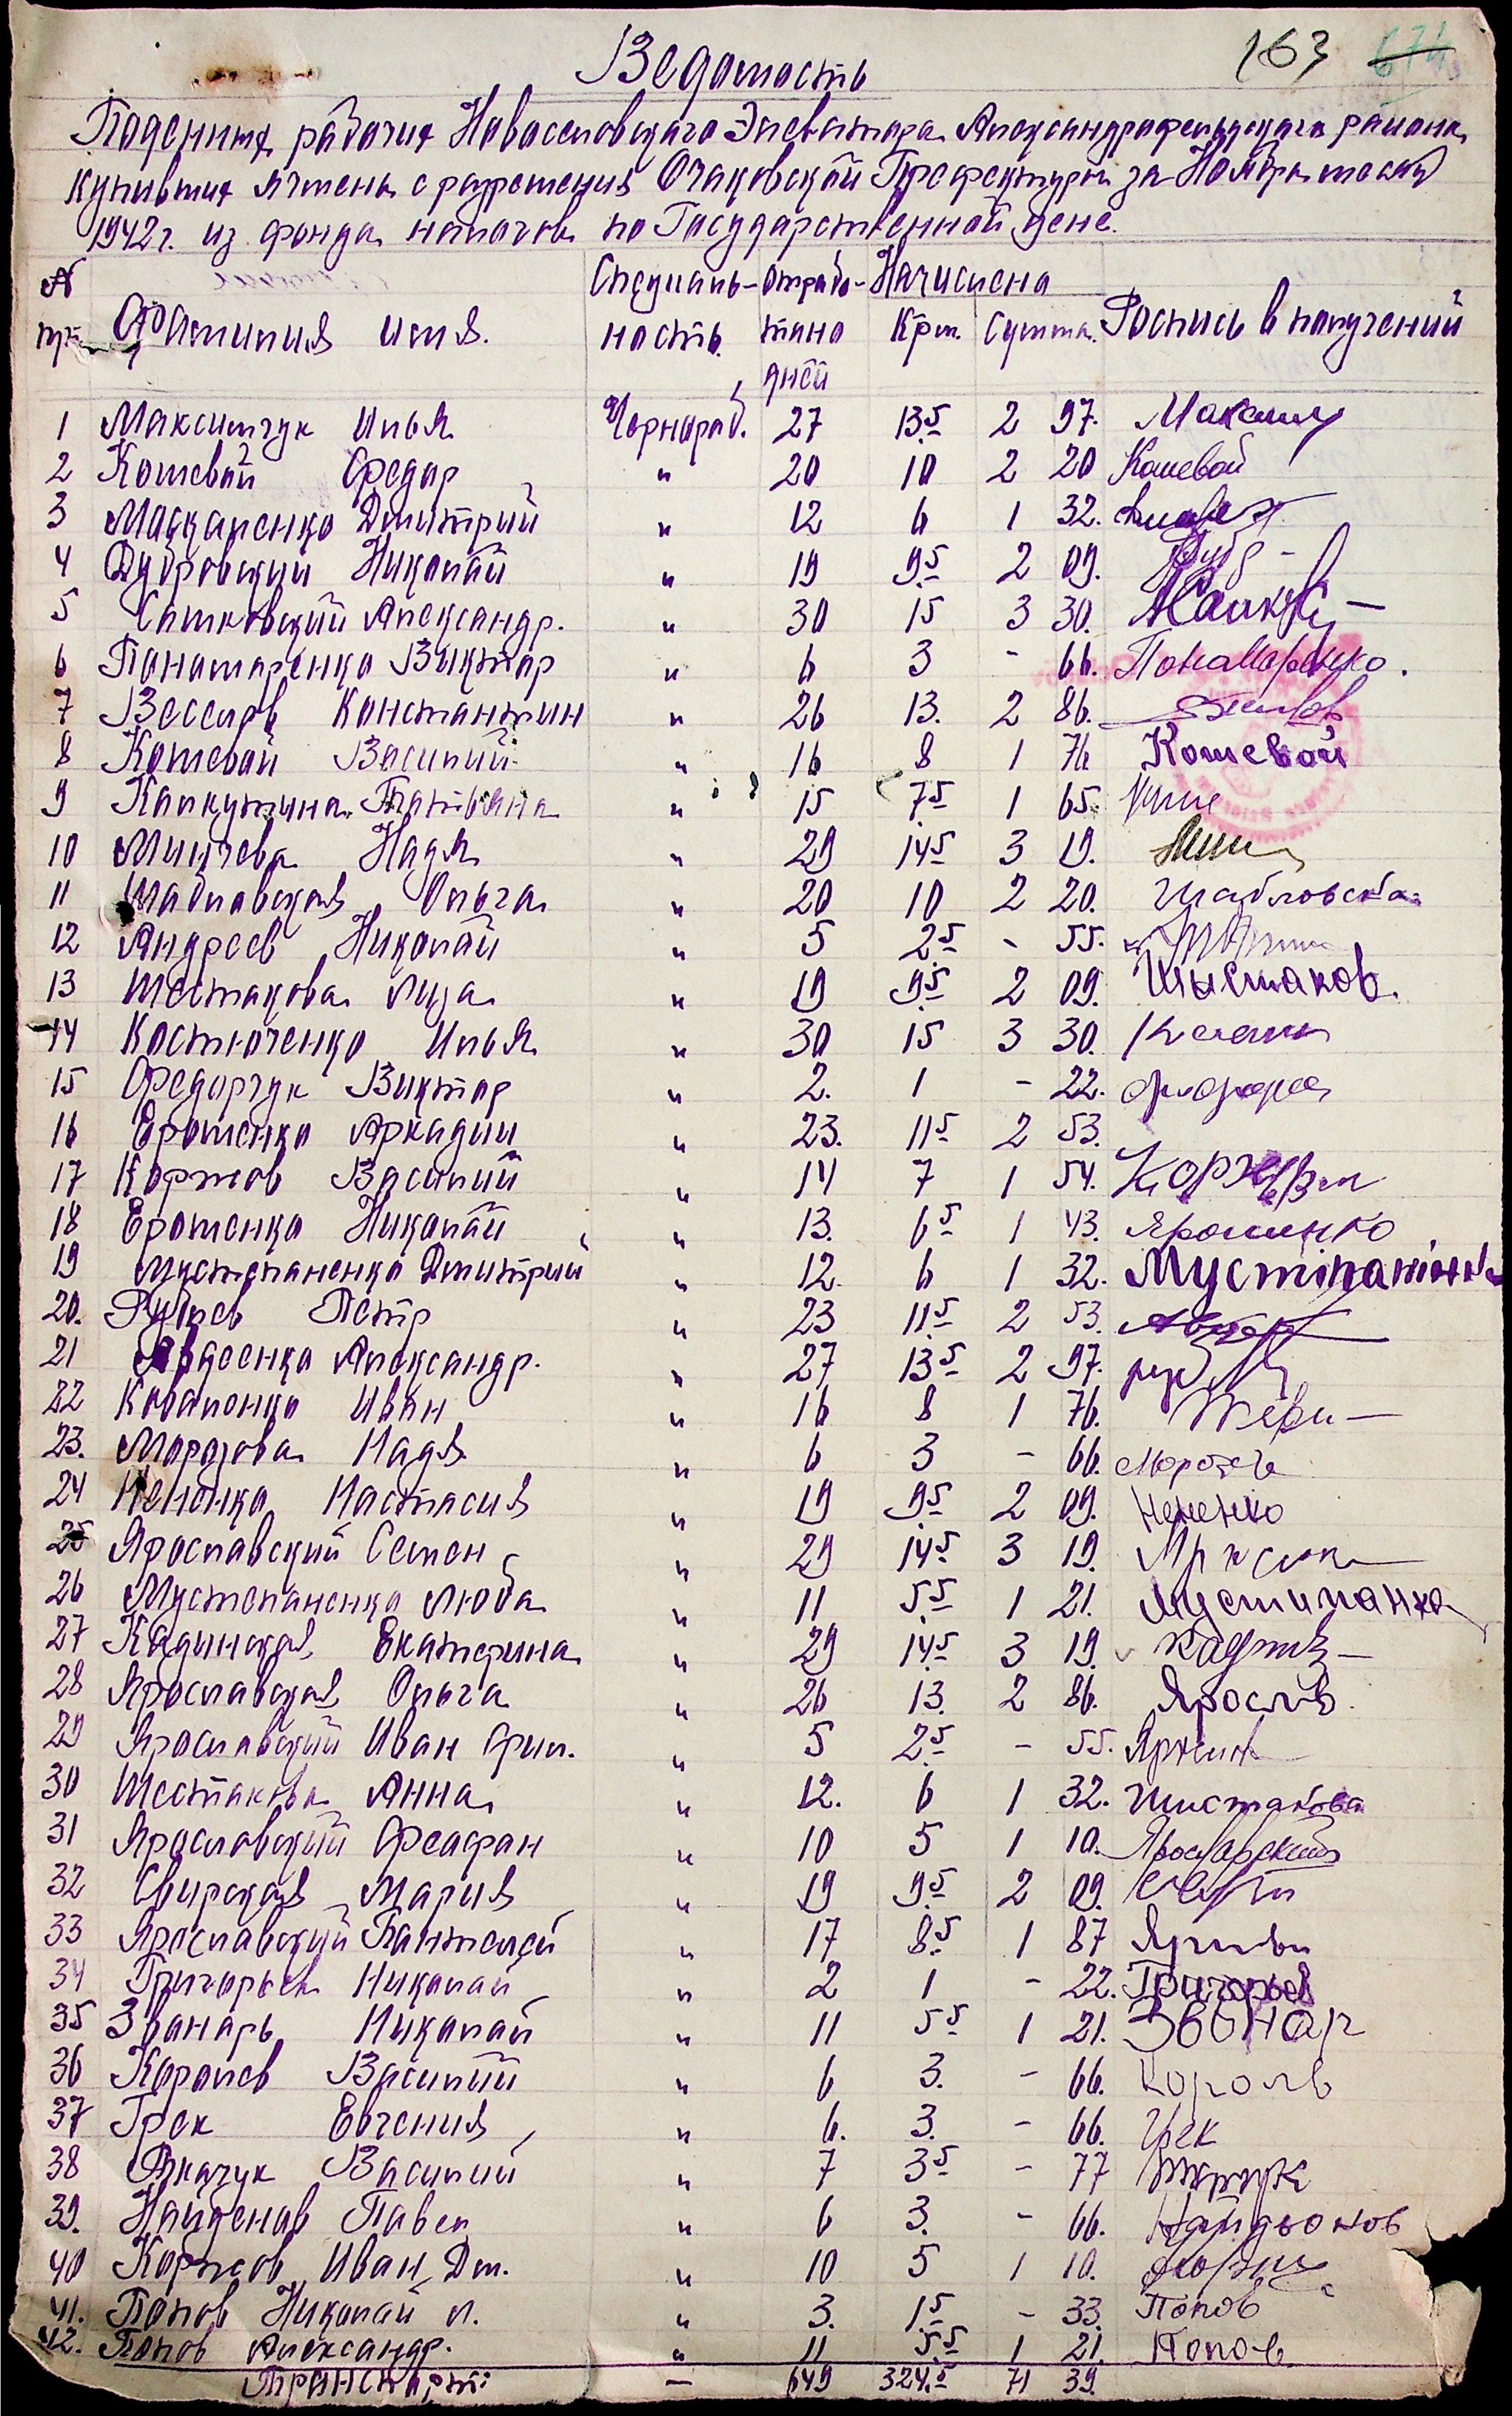 163 674
Ведомость
Поденных рабочих Новоселовского Элеватора Александрофельдского района
купивших ячмень с разрешения Очаковской Префектуры за Ноябрь месяц
1942г. из фонда налогов по Государственной цене.
№ Специаль- Отрабо- Начислено
п/п Фамилия имя. ность. тано Кгр. Сумма. Роспись в получении
дней
1 Максимчук Илья Чернораб. 27 13.5 2 97. Максим
2 Кошевой Федор " 20 10 2 20 Кошевой
3 Москаленко Дмитрий " 12 6 1 32.
4 Дубровский Николай " 19 9.5 2 09. Дубр-
5 Сатковский Александр. " 30 15 3 30.
6 Понамаренко Виктор " 6 3 - 66. Понамаренко.
7 Весслов Константин " 26 13. 2 86.
8 Кошевой Василий " 16 8 1 76 Кошевой
9 Калкутина Татьяна " 15 7.5 1 65.
10 Минчева Надя " 29 14.5 3 19. Мин
11 Шабловская Ольга " 20 10 2 20. Шабловска
12 Андреев Николай " 5 2.5 - 55.
13 Шестакова Лиза " 19 9.5 2 09. Шыстаков.
14 Костюченко Илья " 30 15 3 30.
15 Федорчук Виктор " 2. 1 - 22.
16 Ерошенко Аркадий " 23. 11.5 2 53.
17 Коржов Василий " 14 7 1 54.
18 Ерошенко Николай " 13. 6.5 1 43. Ярошинко
19 Мустепаненко Дмитрий " 12. 6 1 32.
20. Рублев Петр " 23 11.5 2 53.
21 Авдеенко Александр. " 27 13.5 2 97.
22 Коваленко Иван " 16 8 1 76.
23. Морозова Надя " 6 3 - 66.
24 Нененко Настасия " 19 9.5 2 09. Нененко
25 Ярославский Семен " 29 14.5 3 19.
26 Мустепаненко Люба " 11 5.5 1 21. Мустипанко
27 Кадинская Екатерина " 29 14.5 3 19.
28 Ярославская Ольга " 26 13. 2 86. Ярослв.
29 Ярославский Иван Фил. " 5 2.5 - 55.
30 Шестакова Анна " 12. 6 1 32. Шистакова
31 Ярославский Феофан " 10 5 1 10. Ярославский
32 Свирская Мария " 19 9.5 2 09.
33 Ярославский Пантелей " 17 8.5 1 87
34 Григорьев Николай " 2 1 - 22. Григорьев
35 Звонарь Николай " 11 5.5 1 21. Звонар
36 Королев Василий " 6 3. - 66. Королв
37 Грек Евгения " 6. 3. - 66. Грек
38 Ткачук Василий " 7 3.5 - 77 Ткачук
39. Найденов Павел " 6 3. - 66. Найдьонов
40 Коржов Иван Дм. " 10 5 1 10.
41. Попов Николай Л. " 3. 1.5 - 33. Попов
42. Попов Александр. " 11 5.5 1 21. Попов
Транспорт: — 649 324.5 71 39.